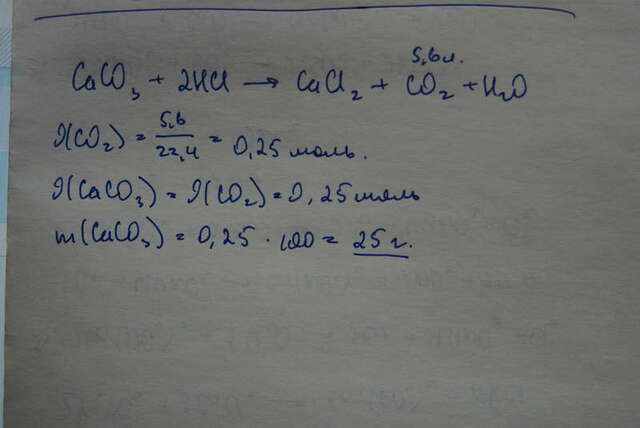 5,6 л.
CaCO₃ + 2HCl → CaCl₂ + CO₂ + H₂O
ν(CO₂) = 5,6/22,4 = 0,25 моль.
ν(CaCO₃) = ν(CO₂) = 0,25 моль
m(CaCO₃) = 0,25 · 100 = 25 г.